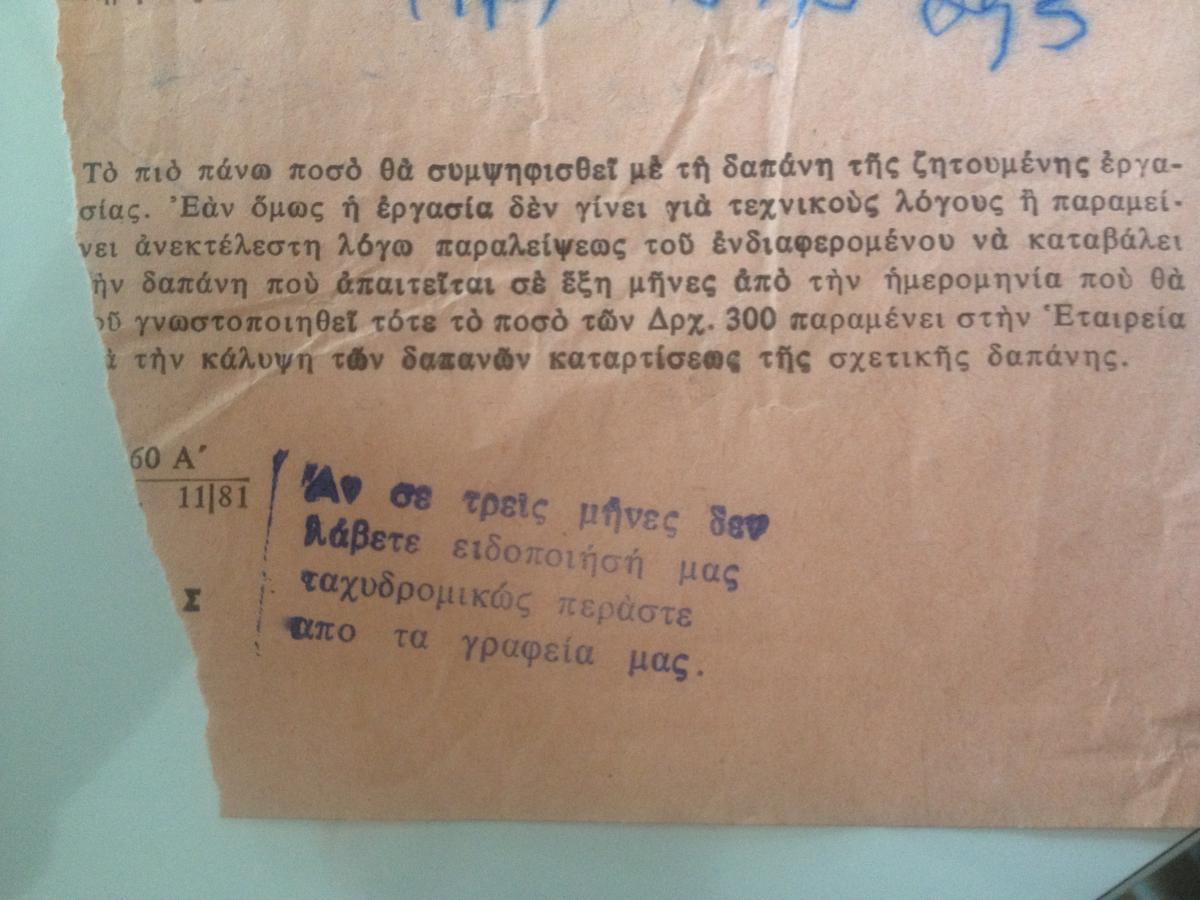 Τὸ πιὸ πάνω ποσὸ θὰ συμψηφισθεῖ μὲ τὴ δαπάνη τῆς ζητουμένης ἐργα-
σίας. Ἐὰν ὅμως ἡ ἐργασία δὲν γίνει γιὰ τεχνικοὺς λόγους ἢ παραμεί-
νει ἀνεκτέλεστη λόγω παραλείψεως τοῦ ἐνδιαφερομένου νὰ καταβάλει
ὴν δαπάνη ποὺ ἀπαιτεῖται σὲ ἕξη μῆνες ἀπὸ τὴν ἡμερομηνία ποὺ θὰ
οῦ γνωστοποιηθεῖ τότε τὸ ποσὸ τῶν Δρχ. 300 παραμένει στὴν Ἑταιρεία
ὰ τὴν κάλυψη τῶν δαπανῶν καταρτίσεως τῆς σχετικῆς δαπάνης.
60 Α΄
11|81
Σ
Ἂν σε τρεῖς μῆνες δεν
λάβετε ειδοποιήσή μας
ταχυδρομικώς περὰστε
απο τα γραφεία μας.